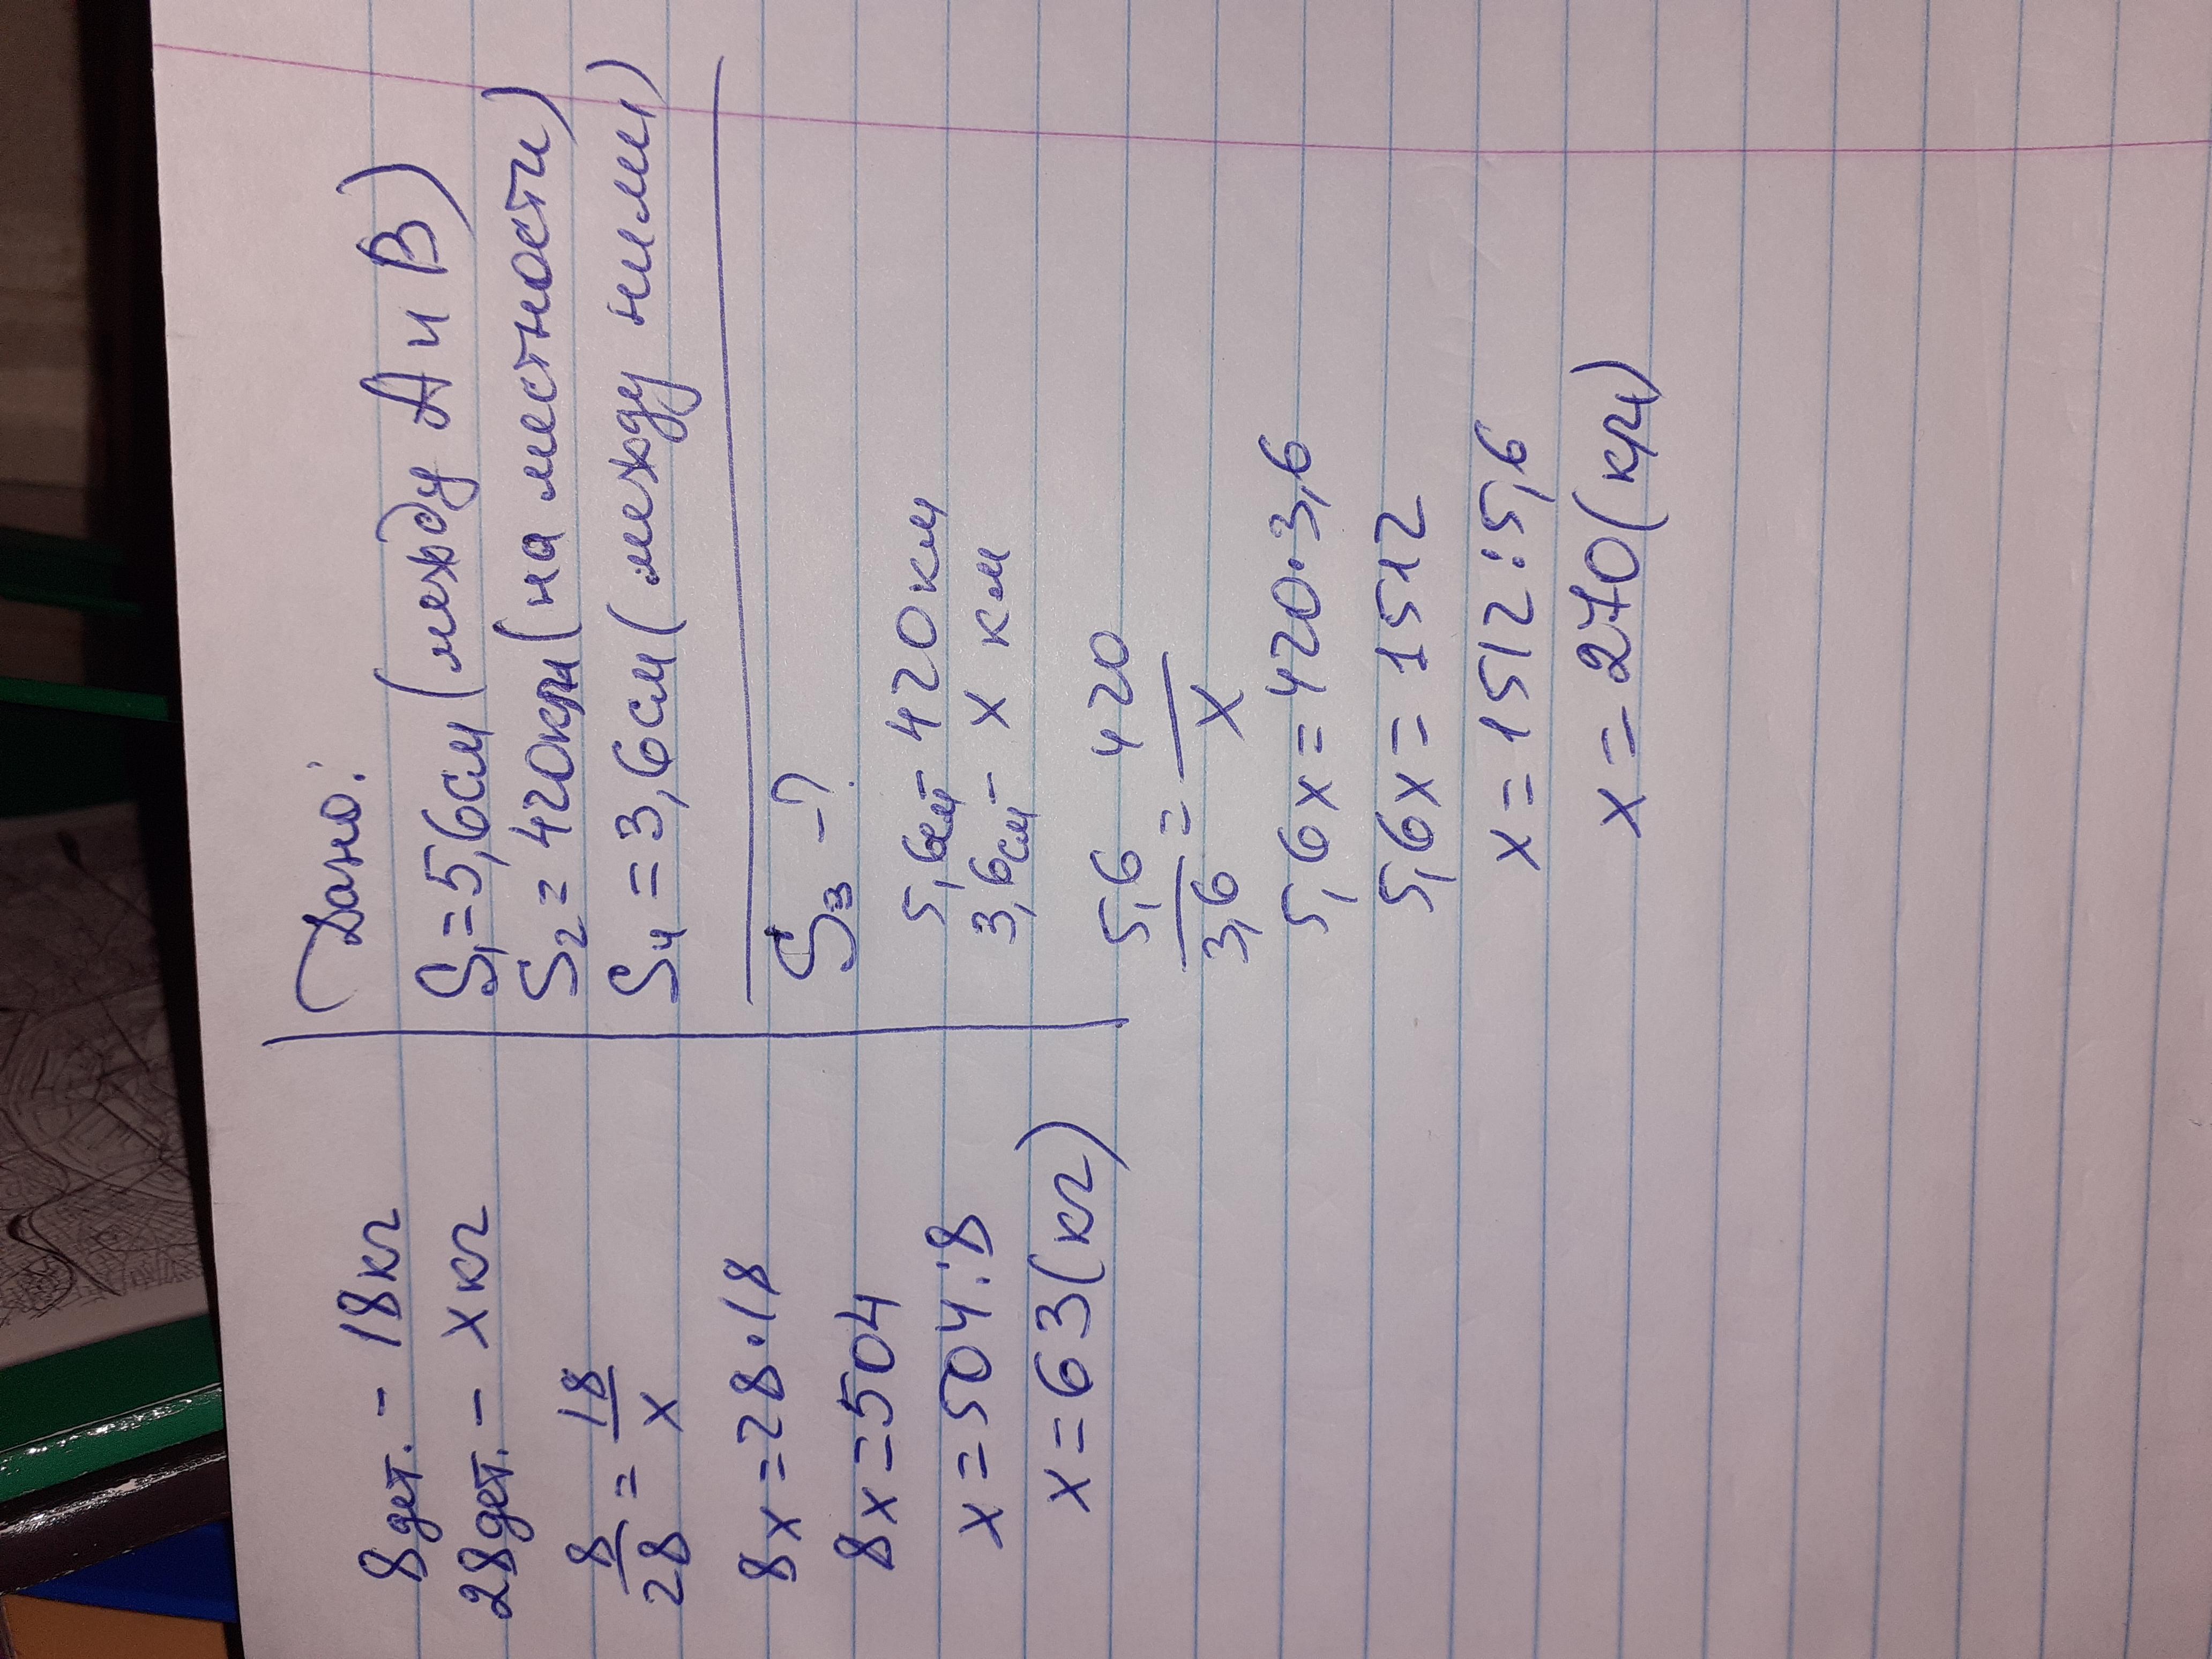 8дет. - 18кг
28дет. - xкг
8/28 = 18/x
8x=28·18
8x=504
x=504:8
x=63(кг)
Дано:
S1=5,6см(между А и В)
S2=420км(на местности)
S4=3,6см(между ними)
S3 -?
5,6см- 420км
3,6см- x км
5,6/3,6 = 420/x
5,6x=420·3,6
5,6x=1512
x=1512:5,6
x=270(км)